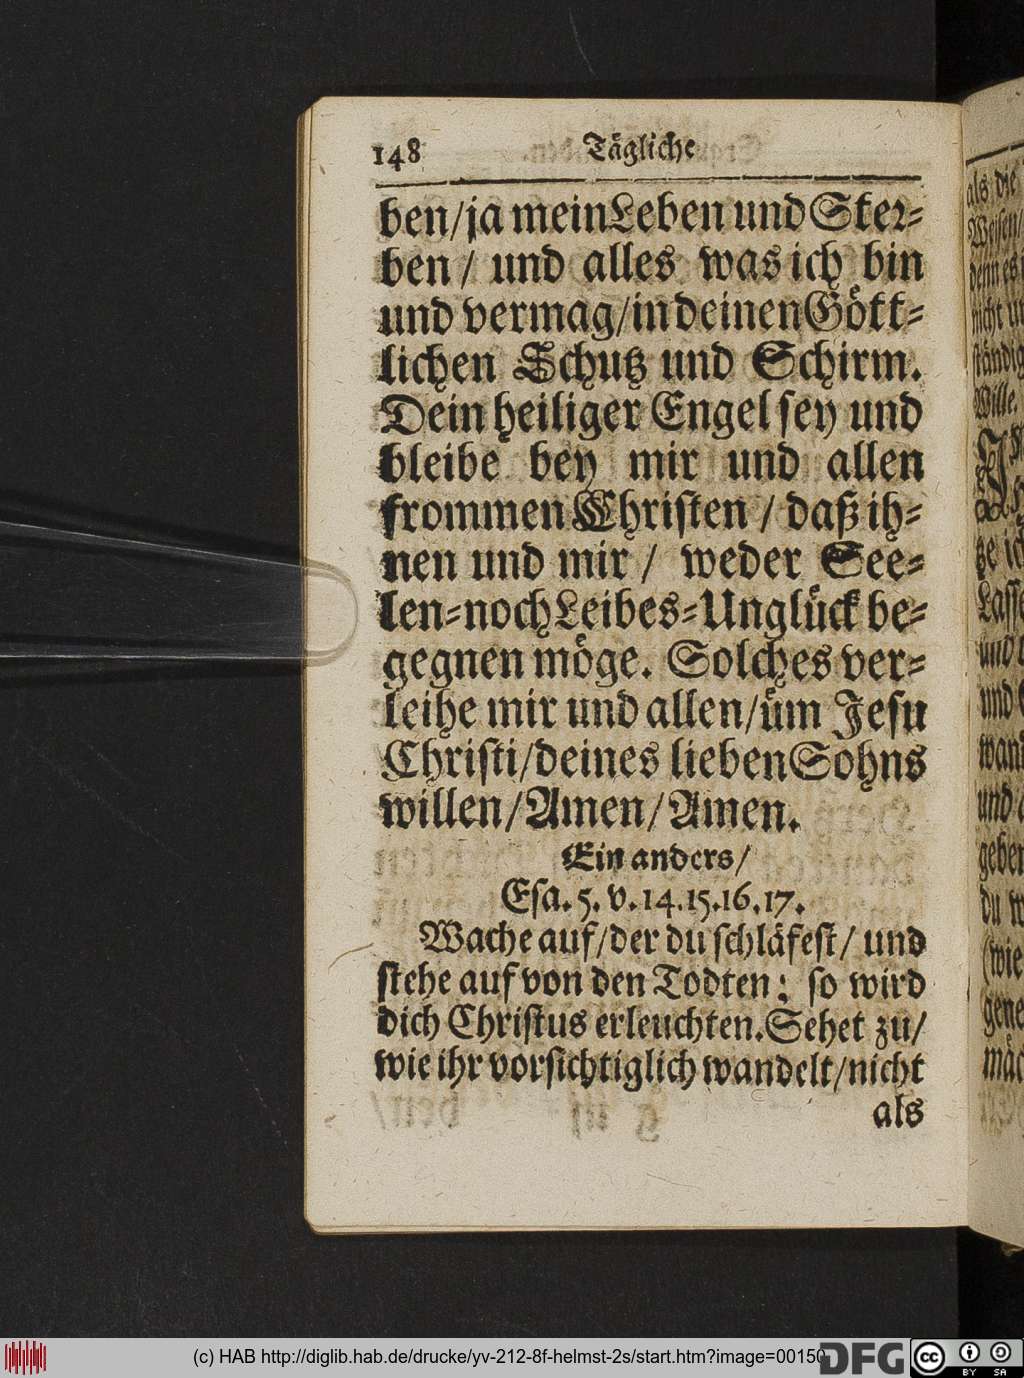 148 Tägliche
ben/ja mein Leben und Ster-
ben / und alles was ich bin
und vermag/in deinen Gött-
lichen Schutz und Schirm.
Dein heiliger Engel sey und
bleibe bey mir und allen
frommen Christen / daß ih-
nen und mir / weder See-
len-noch Leibes-Unglück be-
gegnen möge. Solches ver-
leihe mir und allen/üm Jesu
Christi/deines lieben Sohns
willen/Amen/Amen.
Ein anders/
Esa. 5. v. 14.15.16.17.
Wache auf/der du schläfest/ und
stehe auf von den Todten: so wird
dich Christus erleuchten. Sehet zu/
wie ihr vorsichtiglich wandelt/nicht
als
als die
Weisen/
denn es
nicht
Wille.
und
und
du
(wie
(c) HAB http://diglib.hab.de/drucke/yv-212-8f-helmst-2s/start.htm?image=00150
DFG
cc BY SA